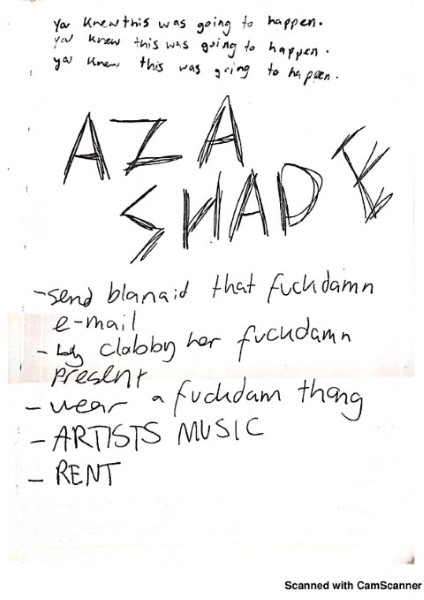 you knew this was going to happen.
you knew this was going to happen.
you knew this was going to happen.
AZA
SHADE
- send blanaid that fuckdamn
e-mail
- clobby her fuckdamn
present
- wear a fuckdam thang
- ARTISTS MUSIC
- RENT
Scanned with CamScanner